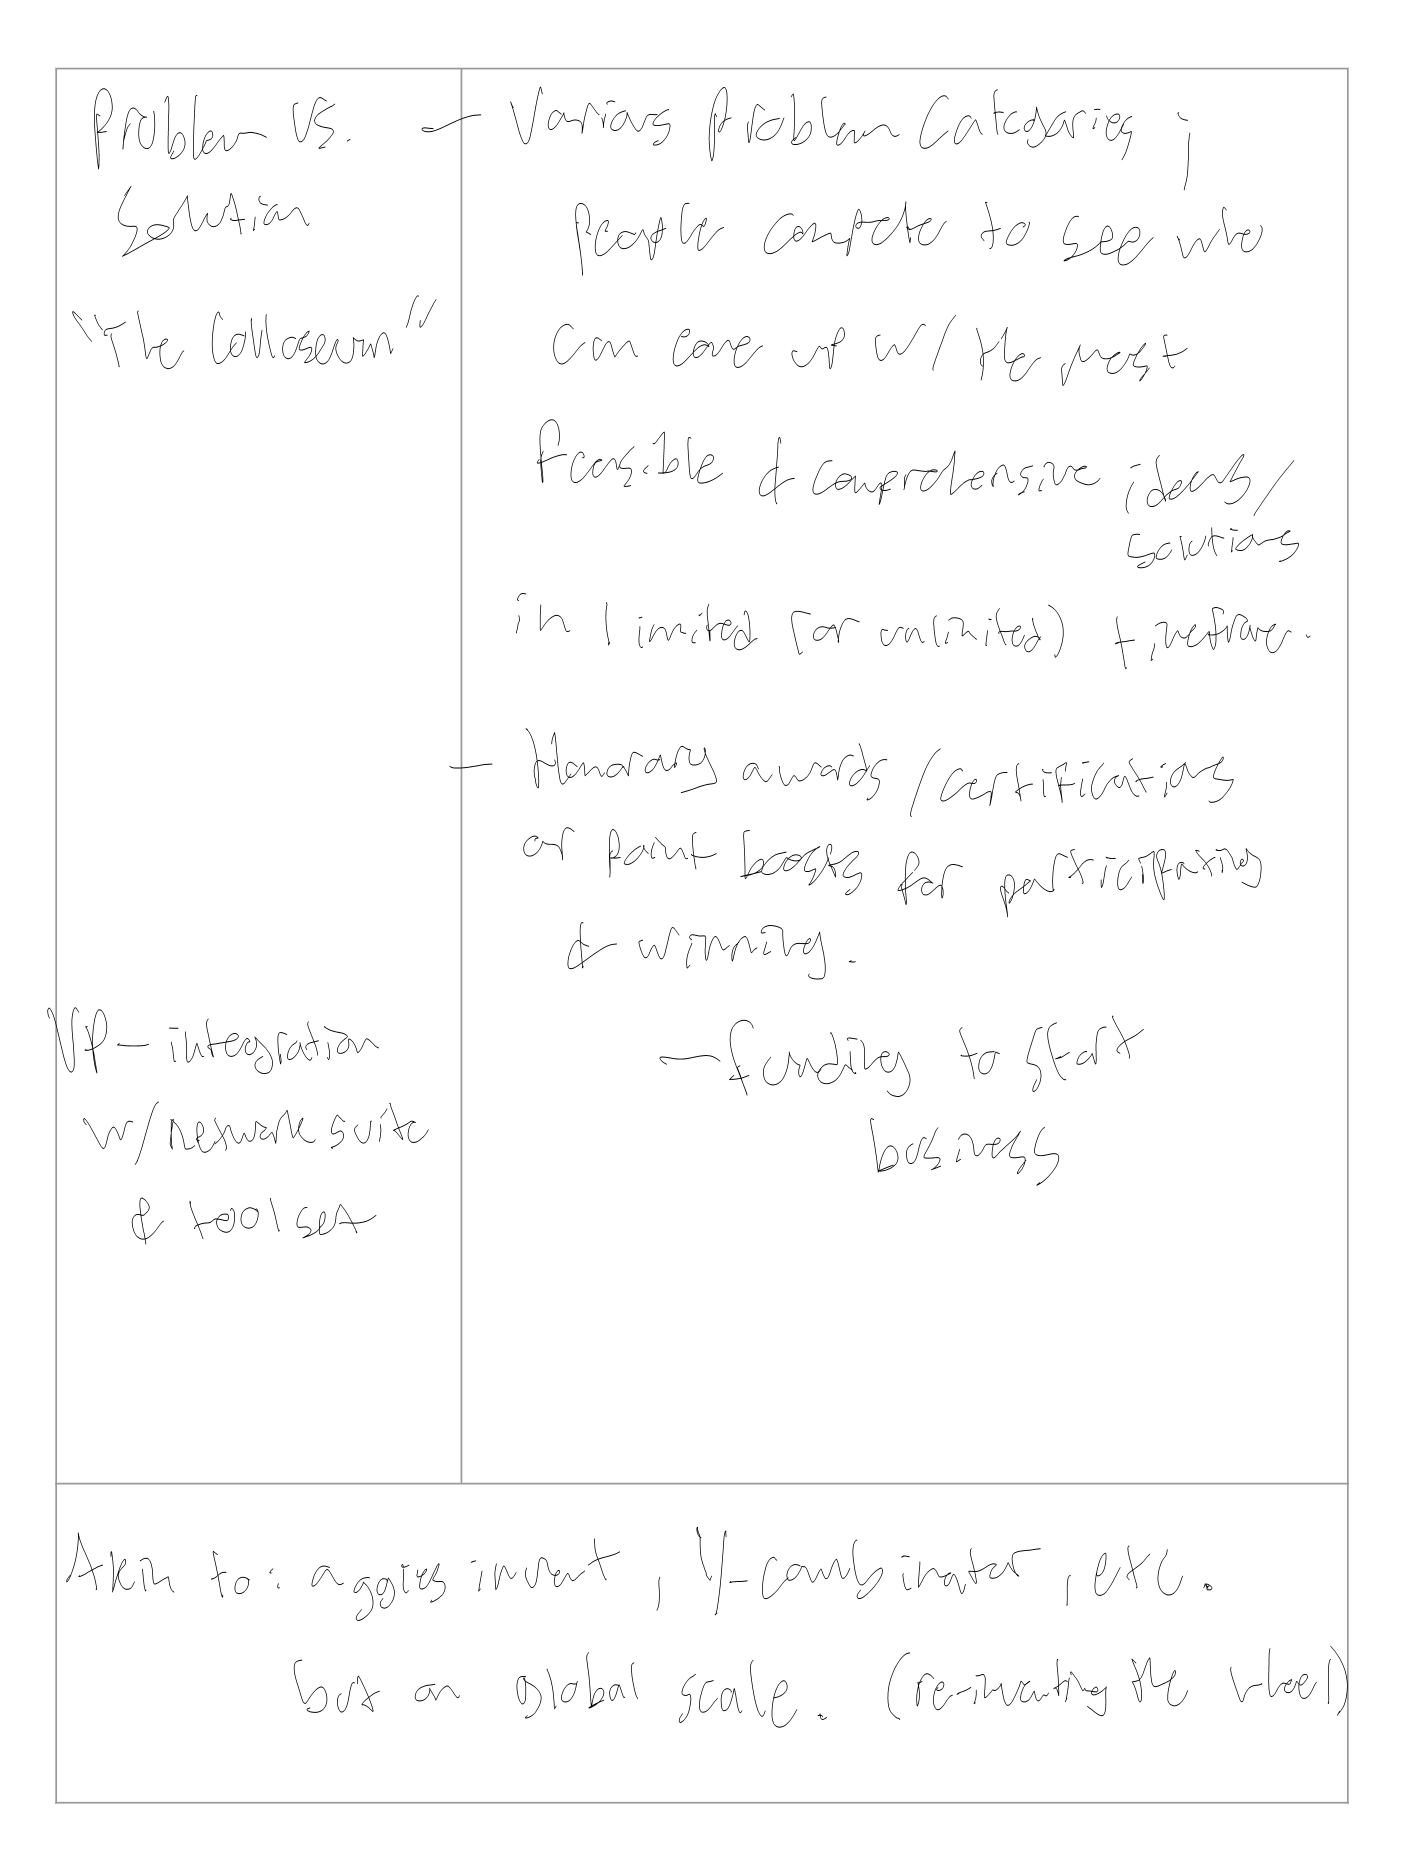 Problem vs.
Solution
"The Colloseum"
VP - integration
w/ network suite
& toolset
- Various Problem Categories;
People compete to see who
can come up w/ the most
feasible & comprehensive ideas/
solutions
in limited (or unlimited) timeframe.
- Honorary awards/certifications
or point boosts for participating
& winning.
- funding to start
business
Akin to: aggies invent, Y-combinator, etc.
but on global scale. (re-inventing the wheel)